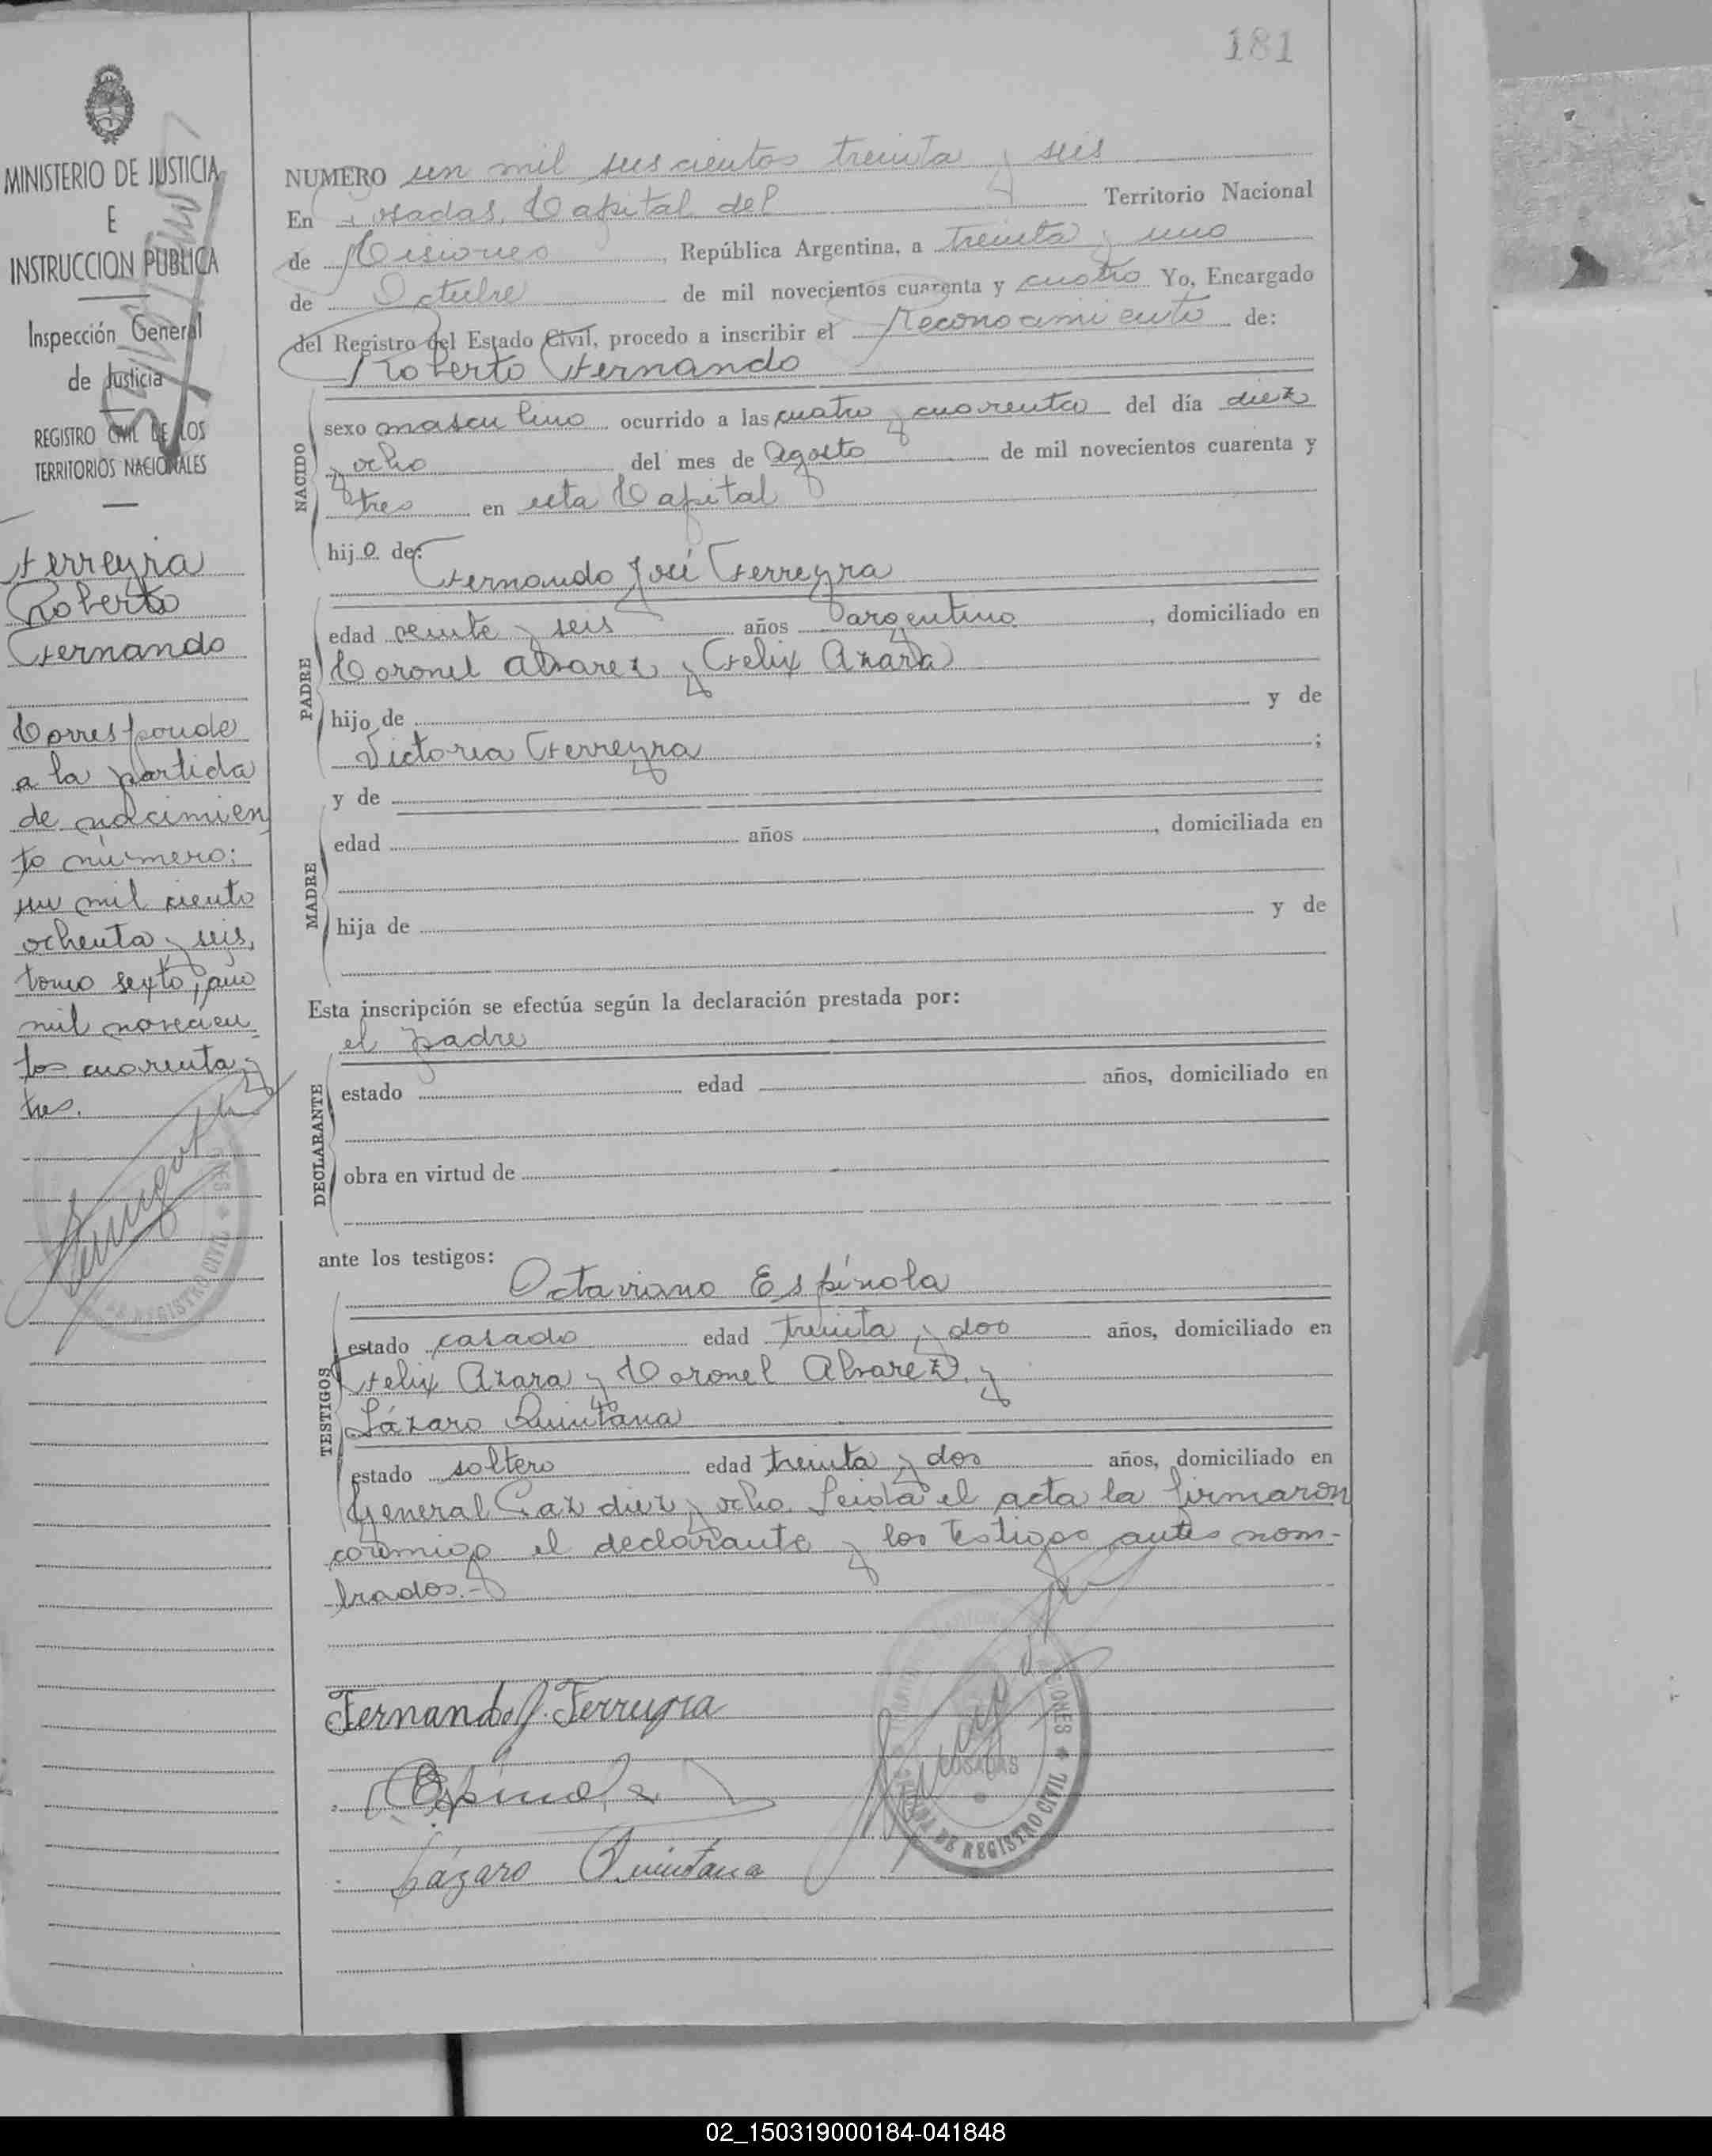 181
MINISTERIO DE JUSTICIA
E
INSTRUCCION PUBLICA
Inspección General
de Justicia
REGISTRO CIVIL DE LOS
TERRITORIOS NACIONALES
Ferreyra
Roberto
Fernando
Corresponde
a la partida
de nacimien
to número:
un mil ciento
ochenta y seis,
tomo sexto, año
mil novecien
tos cuarenta y
tres.
NUMERO un mil seiscientos treinta y seis
En Posadas, Capital del Territorio Nacional
de Misiones, República Argentina, a treinta y uno
de Octubre de mil novecientos cuarenta y cuatro Yo, Encargado
del Registro del Estado Civil, procedo a inscribir el Reconocimiento de:
Roberto Fernando
NACIDO
sexo masculino ocurrido a las cuatro y cuarenta del día diez
y ocho del mes de Agosto de mil novecientos cuarenta y
tres en esta Capital
hijo de:
Fernando José Ferreyra
PADRE
edad veinte y seis años argentino, domiciliado en
Coronel Alvarez y Felix Azara
hijo de y de
Victoria Ferreyra ;
y de
MADRE
edad años , domiciliada en
hija de y de
Esta inscripción se efectúa según la declaración prestada por:
el padre
DECLARANTE
estado edad años, domiciliado en
obra en virtud de
ante los testigos:
Octaviano Espínola
TESTIGOS
estado casado edad treinta y dos años, domiciliado en
Felix Azara y Coronel Alvarez, y
Lázaro Quintana
estado soltero edad treinta y dos años, domiciliado en
General Paz diez y ocho. Leida el acta la firmaron
conmigo el declarante y los testigos antes nom-
brados.-
Fernando J. Ferreyra
Espinola
Lázaro Quintana
POSADAS
DE REGISTRO CIVIL
02_150319000184-041848